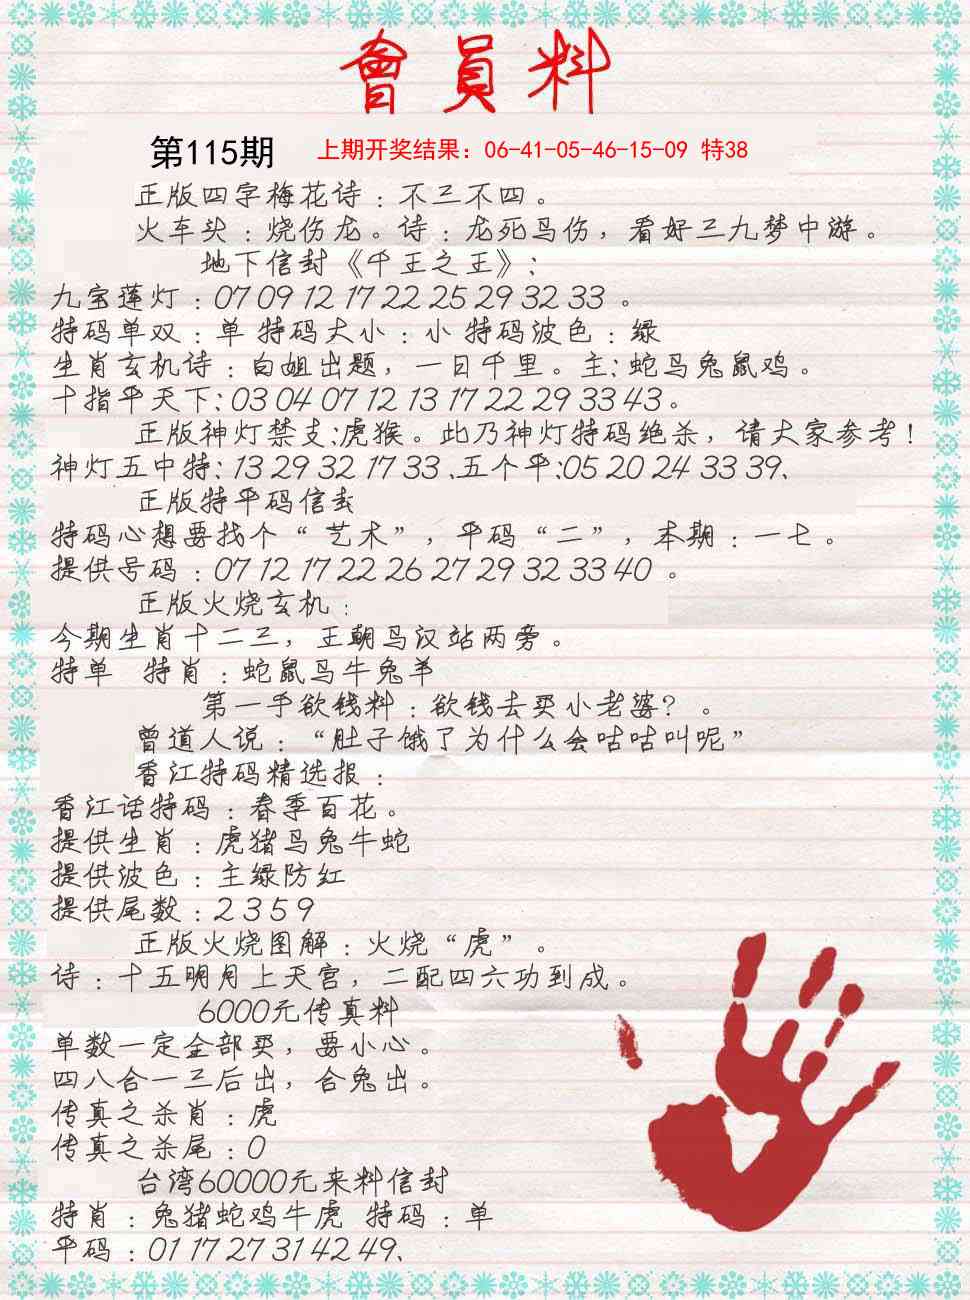 會員料
第115期 上期开奖结果：06-41-05-46-15-09 特38
正版四字梅花诗：不三不四。
火车头：烧伤龙。诗：龙死鸟伤，看好三九梦中游。
地下信封《千王之王》：
九宝莲灯：07 09 12 17 22 25 29 32 33 。
特码单双：单 特码大小：小 特码波色：绿
生肖玄机诗：白姐出题，一日千里。主：蛇马兔鼠鸡。
十指平天下：03 04 07 12 13 17 22 29 33 43。
正版神灯禁支：虎猴。此乃神灯特码绝杀，请大家参考！
神灯五中特：13 29 32 17 33 、五个平：05 20 24 33 39、
正版特平码信封
特码心想要找个“艺术”，平码“二”，本期：一七。
提供号码：07 12 17 22 26 27 29 32 33 40 。
正版火烧玄机：
今期生肖十二三，王朝马汉站两旁。
特单 特肖：蛇鼠马牛兔羊
第一手欲钱料：欲钱去买小老婆？。
曾道人说：“肚子饿了为什么会咕咕叫呢”
香江特码精选报：
香江话特码：春季百花。
提供生肖：虎猪马兔牛蛇
提供波色：主绿防红
提供尾数：2 3 5 9
正版火烧图解：火烧“虎”。
诗：十五明月上天宫，二配四六功到成。
6000元传真料
单数一定全部买，要小心。
四八合一三后出，合兔出。
传真之杀肖：虎
传真之杀尾：0
台湾60000元来料信封
特肖：兔猪蛇鸡牛虎 特码：单
平码：01 17 27 31 42 49、